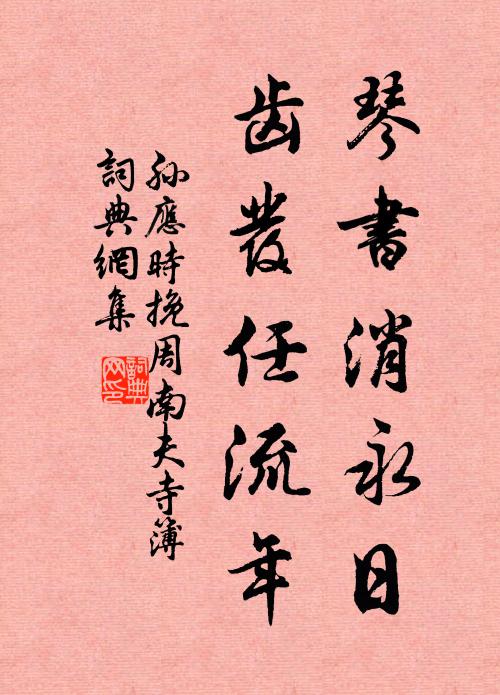 琴書消永日
齿發任流年
孙應時挽周南夫寺簿
詞典網集
詞典網印